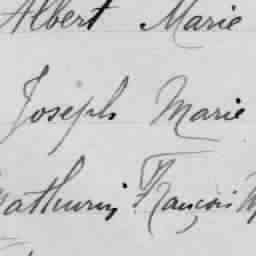 Albert Marie
Joseph Marie
Mathurin François